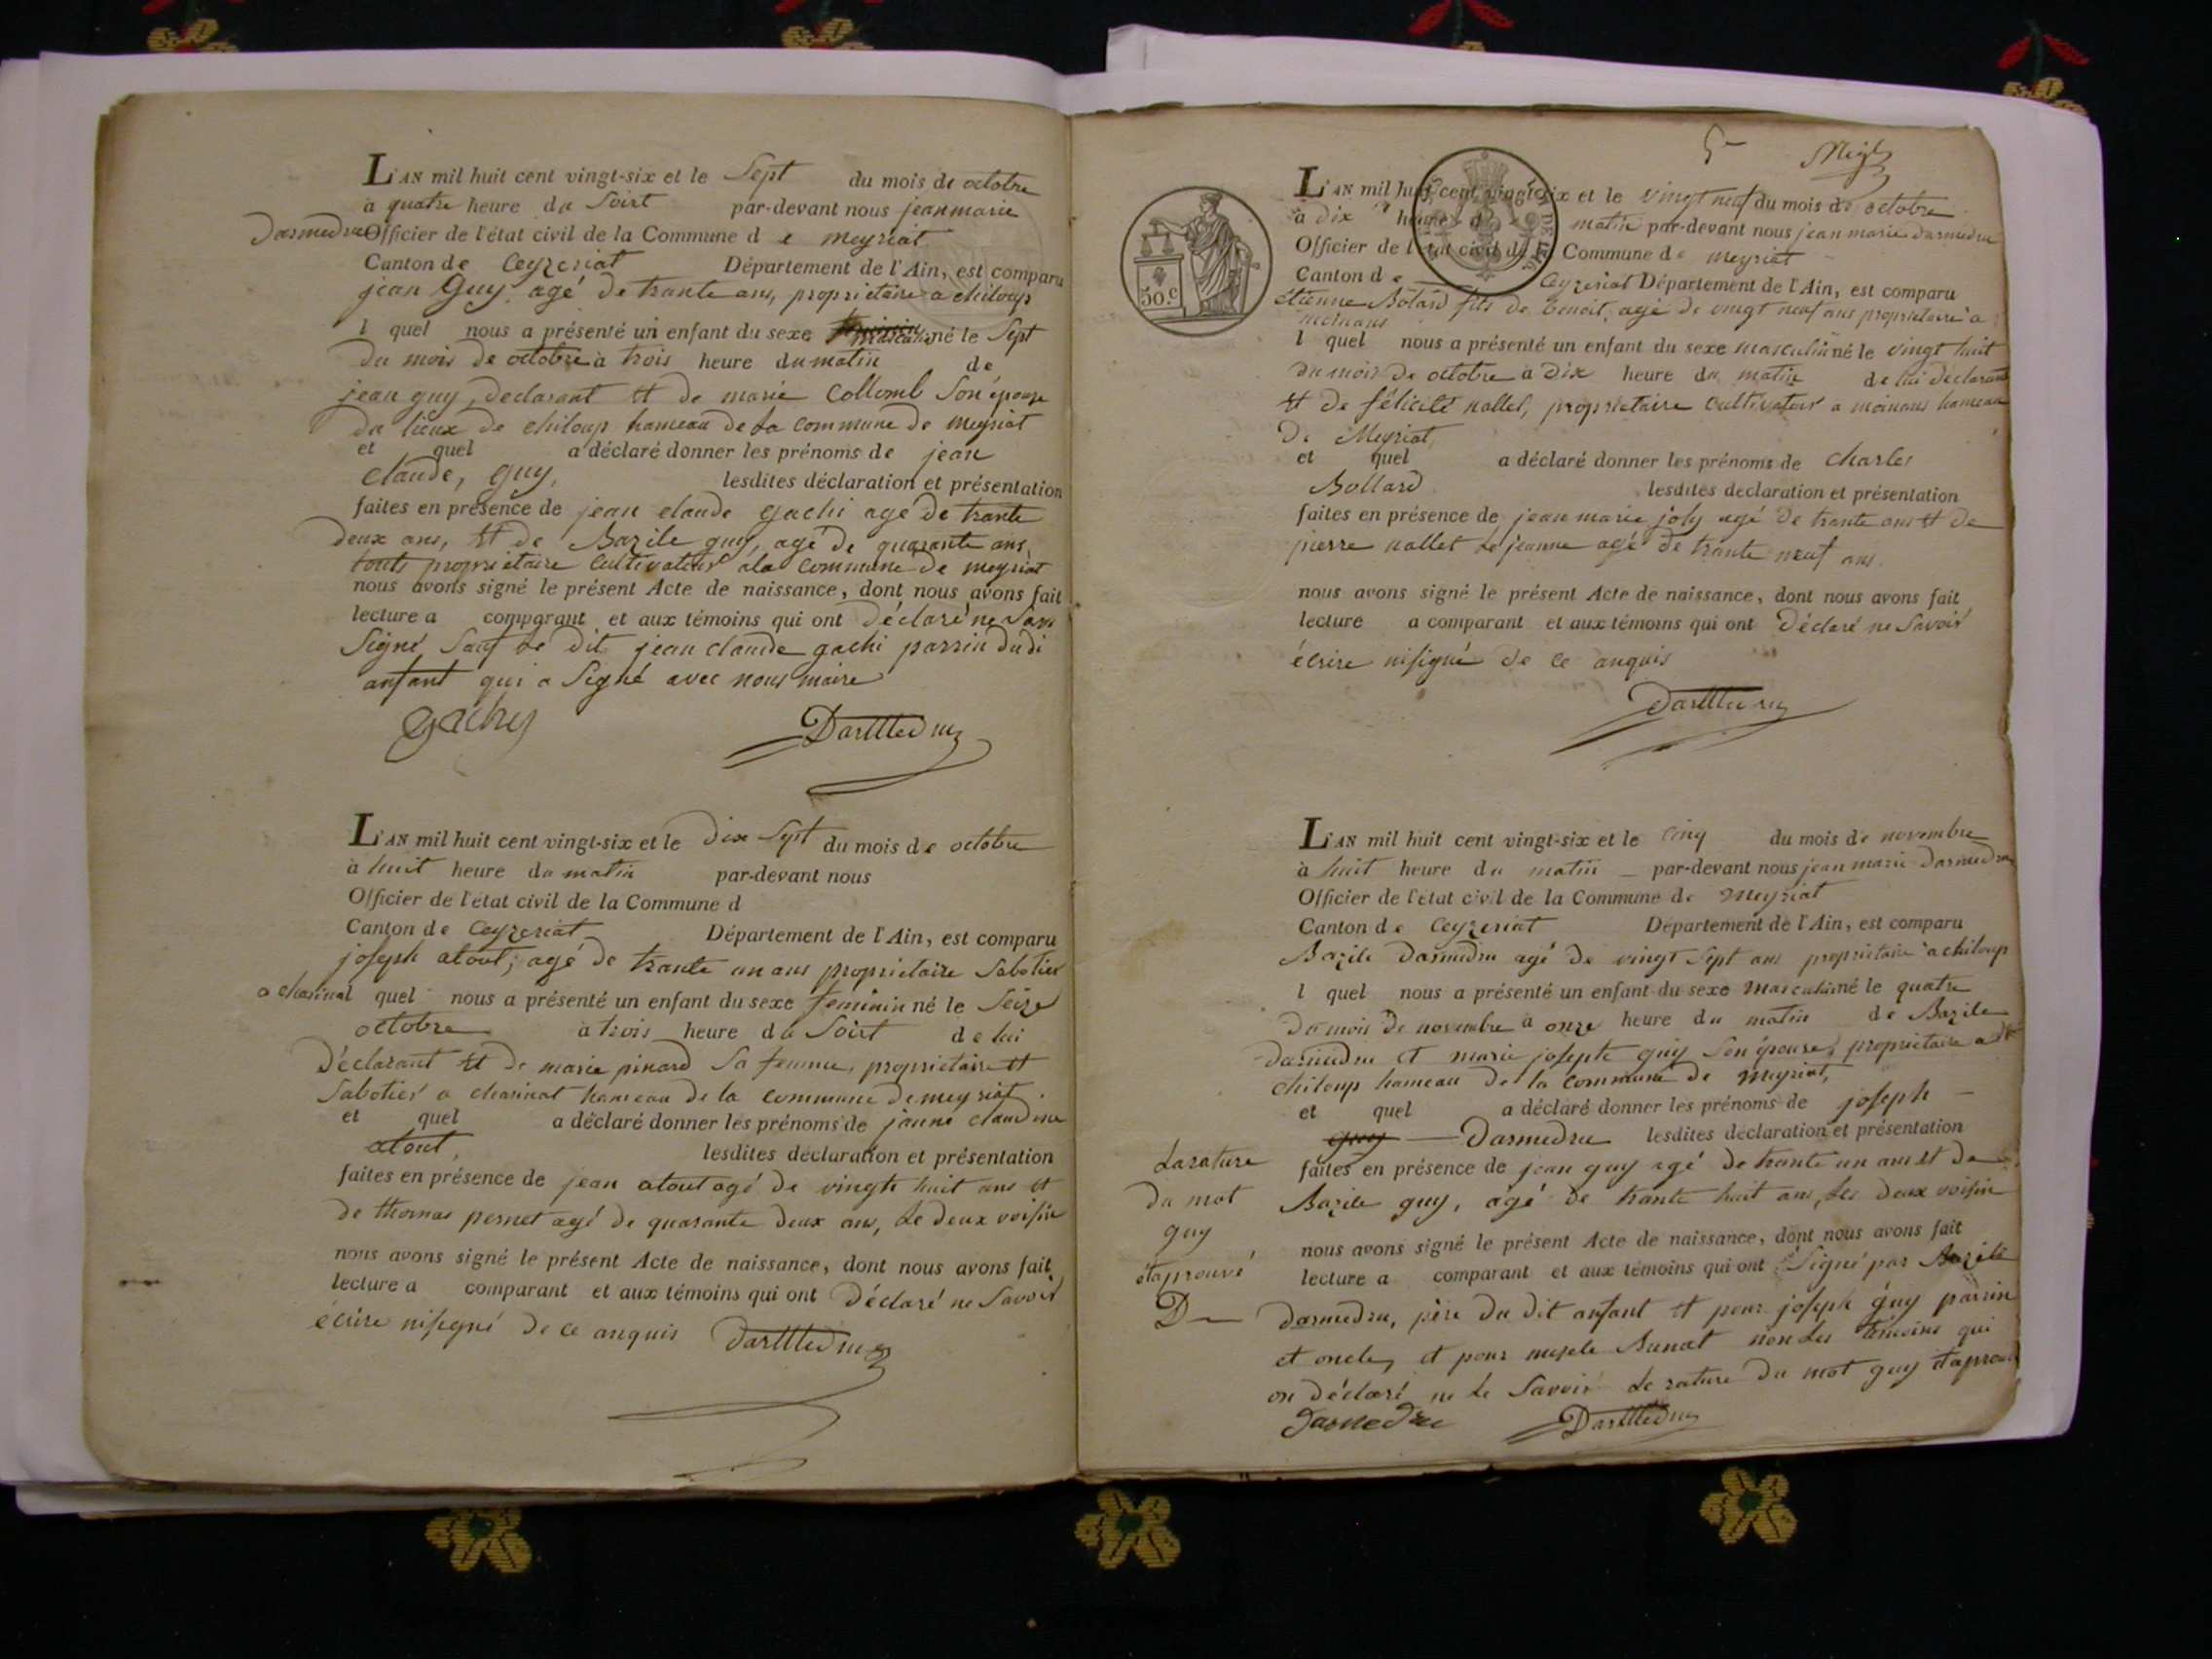 L'AN mil huit cent vingt-six et le Sept du mois de octobre
à quatre heure du Soirt par-devant nous jean marie
Darmedru Officier de l'état civil de la Commune d e meyriat
Canton de Ceyzeriat Département de l'Ain, est comparu
jean Guy agé de trante ans, proprietaire a chiloup
l quel nous a présenté un enfant du sexe masculin né le Sept
du mois de octobre à trois heure du matin de
jean guy, declarant et de marie Collomb Son épouse
du lieux de chiloup hameau de La commune de meyriat
et quel a déclaré donner les prénoms de jean
claude, guy, lesdites déclaration et présentation
faites en présence de jean claude gachi agé de trante
deux ans, et de Bazile guy, agé de quarante ans,
touts proprietaire Cultivateur ala commune de meyriat
nous avons signé le présent Acte de naissance, dont nous avons fait
lecture a comparant et aux témoins qui ont Déclaré ne Savs
Signé Sauf Le dit jean claude gachi parrin du di
anfant qui a Signé avec nous maire
gachy Darmedru
L'AN mil huit cent vingt-six et le dix Sept du mois de octobre
à huit heure du matin par-devant nous
Officier de l'état civil de la Commune d
Canton de Ceyzeriat Département de l'Ain, est comparu
joseph atout, agé de trante un ans proprietaire Sabotier
a charinat quel nous a présenté un enfant du sexe feminin né le Seize
octobre à trois heure du Soirt de lui
déclarant et de marie pinard Sa femme, proprietaire et
Sabotier a charinat hameau de la commune de meyriat
et quel a déclaré donner les prénoms de janne claudine
atout, lesdites déclaration et présentation
faites en présence de jean atout agé de vingte huit ans et
de thomas pernet agé de quarante deux ans, Le deux voisin
nous avons signé le présent Acte de naissance, dont nous avons fait
lecture a comparant et aux témoins qui ont déclaré ne Savoir
écrire nisigné de ce anquis Darmedru
5e
L'AN mil huit cent vingt-six et le vingt neuf du mois de octobre
à dix heure d matin par-devant nous jean marie darmedru
Officier de l'état civil de la Commune de meyriat
Canton de Ceyzeriat Département de l'Ain, est comparu
50 c
étienne Bolard fils de benoit, agé de vingt neuf ans proprietaire a
moinans
l quel nous a présenté un enfant du sexe masculin né le vingt huit
du mois de octobre à dix heure du matin de lui déclarant
et de félicité nallet, proprietaire cultivateur a moinans hameau
de Meyriat
et quel a déclaré donner les prénoms de charles
Bollard lesdites déclaration et présentation
faites en présence de jean marie joly agé de trante ans et de
pierre nallet Le jeanne agé de trante neuf ans.
nous avons signé le présent Acte de naissance, dont nous avons fait
lecture a comparant et aux témoins qui ont Déclaré ne Savoir
écrire nisigné de ce anquis
Darmedru
L'AN mil huit cent vingt-six et le cinq du mois de novembre
à huit heure du matin par-devant nous jean marie darmedru
Officier de l'état civil de la Commune de meyriat
Canton de Ceyzeriat Département de l'Ain, est comparu
Bazile Darmedru agé de vingt Sept ans proprietaire a chiloup
l quel nous a présenté un enfant du sexe masculin né le quatre
du mois de novembre à onze heure du matin de Bazile
darmedru et marie josepte guy Son épouse, proprietaire a
chiloup hameau de la commune de meyriat,
et quel a déclaré donner les prénoms de joseph
guy Darmedru lesdites déclaration et présentation
faites en présence de jean guy agé de trante un ans et de
Bazile guy, agé de trante huit ans, Les deux voisin
nous avons signé le présent Acte de naissance, dont nous avons fait
lecture a comparant et aux témoins qui ont Signé par Bazile
Larature
du mot
guy
etaprouvé
D
Darmedru, père du dit anfant et pour joseph guy parrin
et oncle, et pour Bunat non Les témoins qui
on déclaré ne Le Savoir Le rature du mot guy etaprou
Darmedru Darmedru